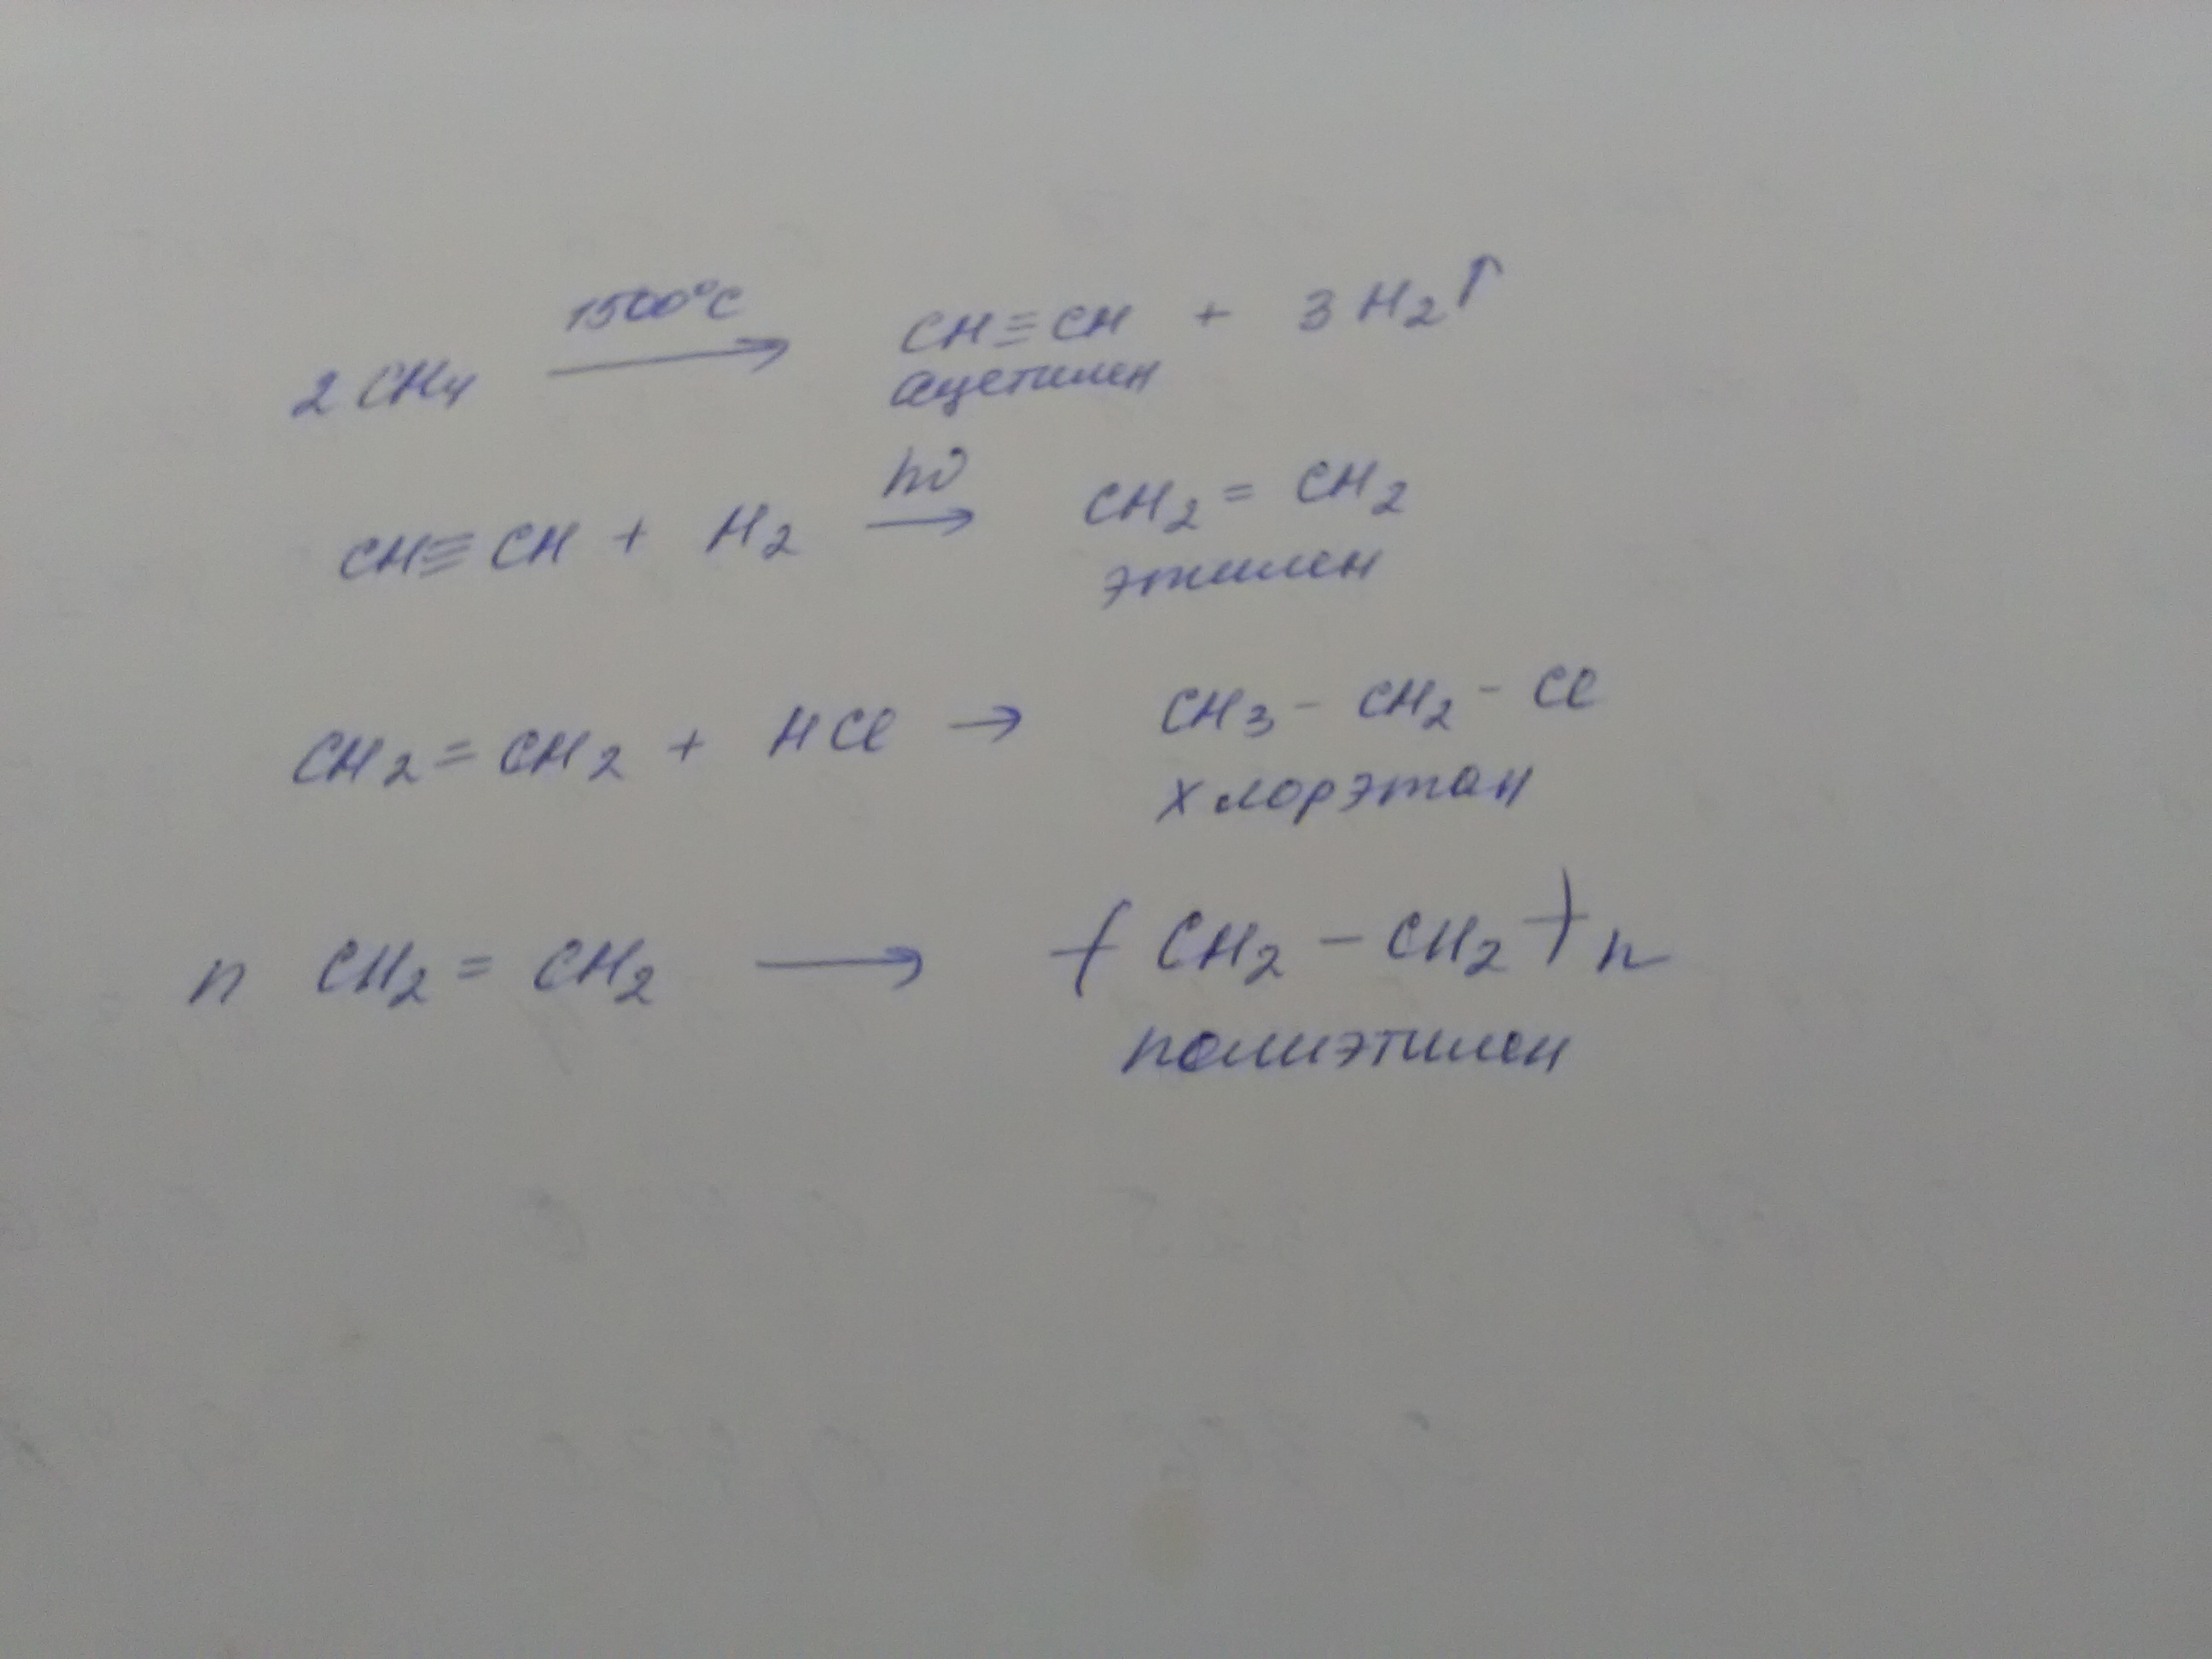 1500°C
2 CH₄ ⟶ CH≡CH + 3 H₂↑
ацетилен
hν
CH≡CH + H₂ → CH₂ = CH₂
этилен
CH₂ = CH₂ + HCl → CH₃ – CH₂ – Cl
хлорэтан
n CH₂ = CH₂ ⟶ (– CH₂ – CH₂ –)n
полиэтилен